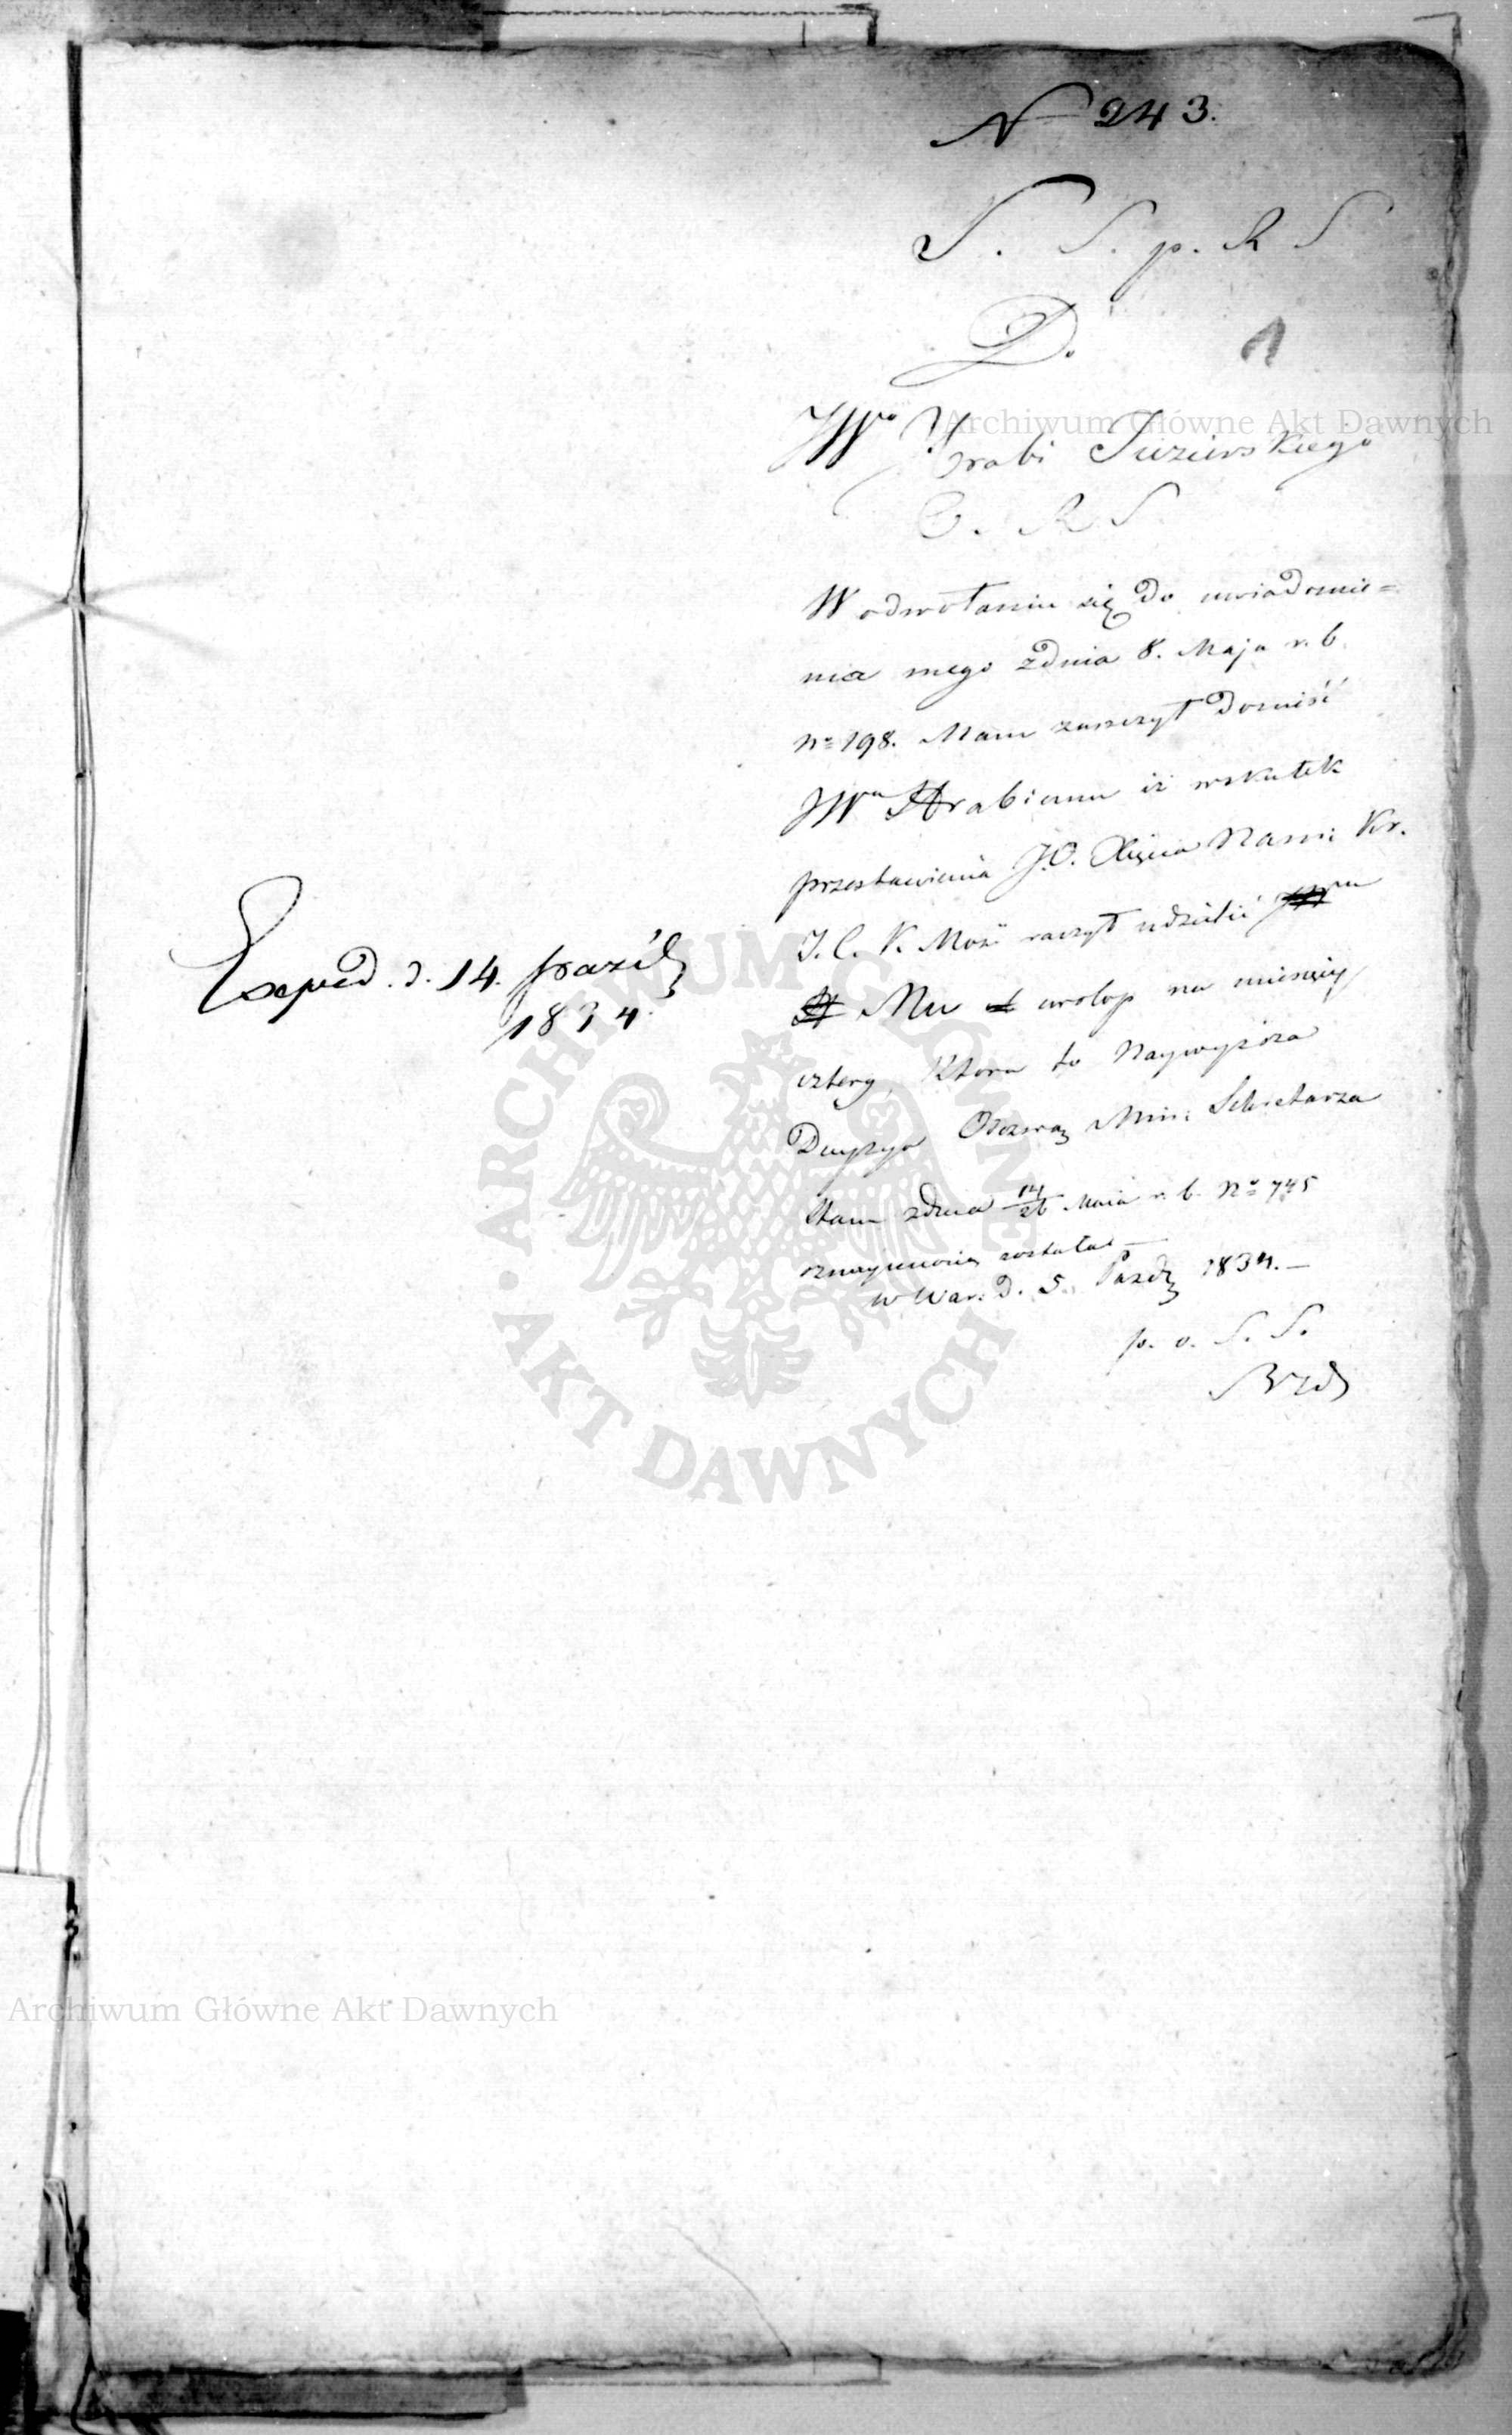 N 243.
S. S. p. R S
D.
1
JWo Hrabi Jezierskiego
C. R S
W odwołaniu się do uwiadomie=
nia mego zdnia 8. Maja r. b.
No 198. Mam zaszczyt donieść
JWu Hrabiemu iż wskutek
przestawienia J.O. Xięcia Nami: Kr.
J. C. K. Mość raczył udzielić JWu
H Mu urlop na miesięcy
cztery, Która to Naywyższa
Decyzya Odezwą Min: Sekretarza
Stanu zdnia 14/26 Maia r. b. No 745
oznaymioną została —
w War. d. 5. Paźdz 1834. —
p. o. S. S.
Exped. d. 14. paźdz
1834.
Archiwum Główne Akt Dawnych
ARCHIWUM GŁÓWNE
• AKT DAWNYCH
Archiwum Główne Akt Dawnych